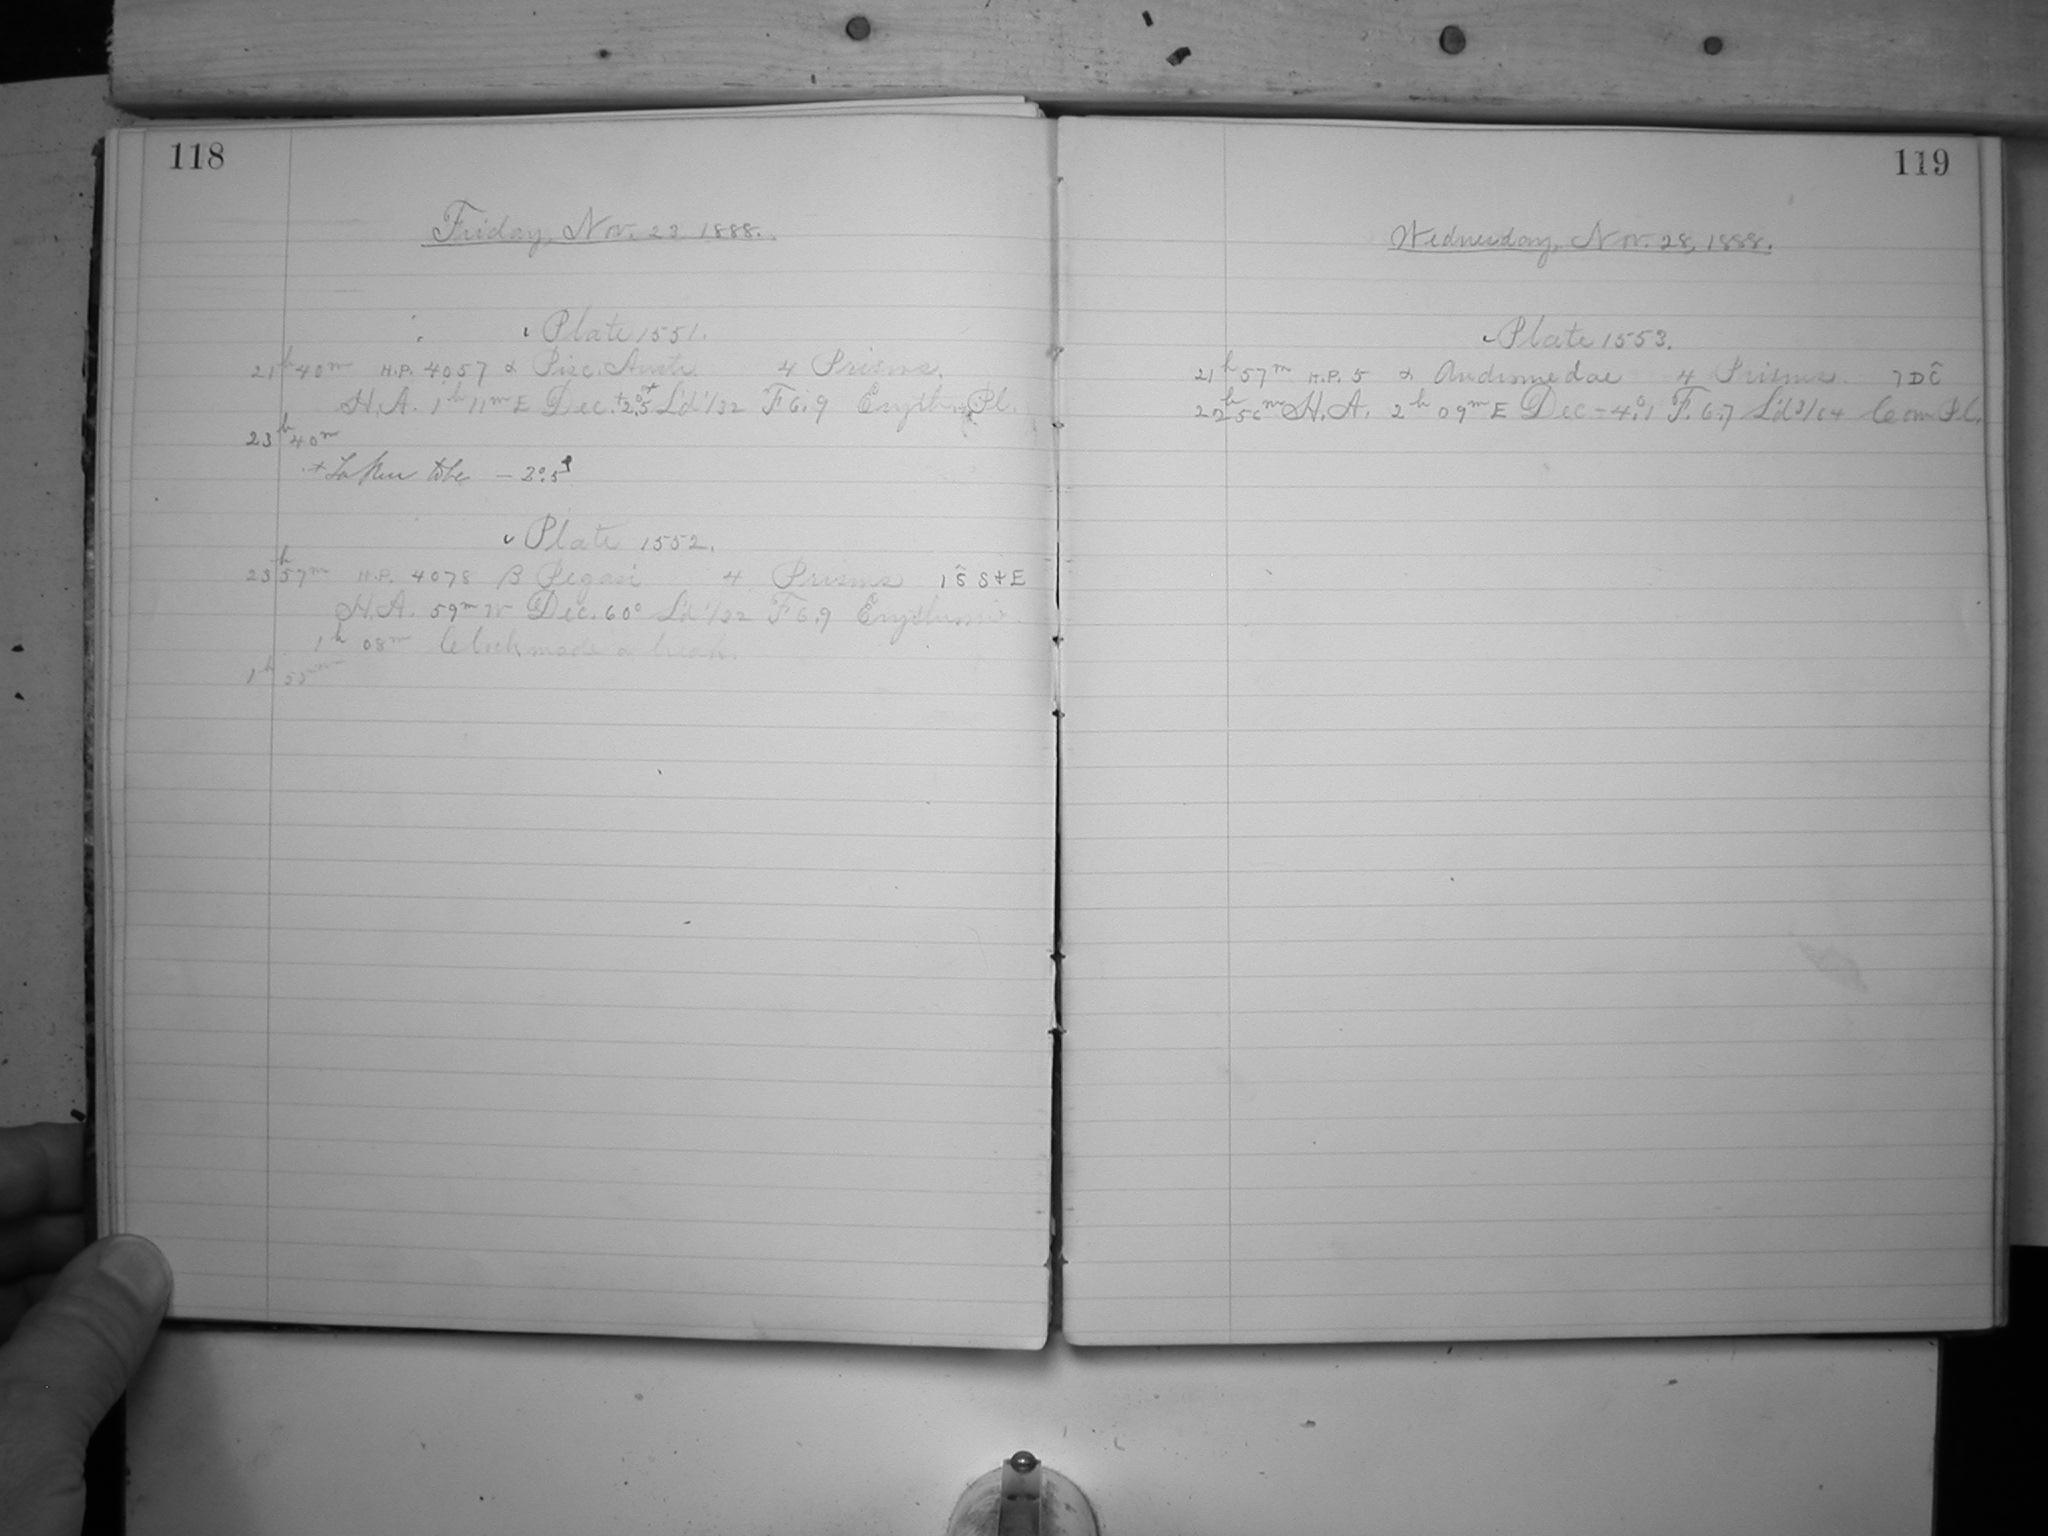 118
Friday, Nov. 23 1888.
Plate 1551.
21h 40m H.P. 4057 α Pisc. Austr. 4 Prisms.
H.A. 1h 11m E Dec. +2.°5+ L'd 1/32 F 6.9 Eryth. Pl.
23h 40m
+ Taken to be - 2°.5?
Plate 1552.
23h 57m H.P. 4078 β Pegasi 4 Prisms 1 S S+E
H.A. 59m W Dec. 60° L'd 1/32 F 6.9 Erythrosin
1h 08m Clock made a break.
1h 55m
119
Wednesday, Nov. 28, 1888.
Plate 1553.
21h 57m H.P. 5 α Andromedae 4 Prisms. 7 D C
22h 56m H.A. 2h 09m E Dec - 4.°1 F. 6.7 L'd 3/64 Com Pl.